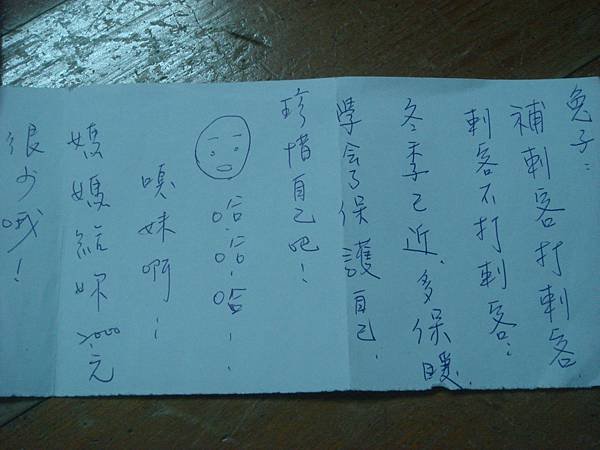 兔子：
補刺客打刺客
刺客不打刺客：
冬季已近，多保暖，
學會了保護自己，
珍惜自己吧！
哈哈哈！
嘎妹啊！
媽媽給妳2000元
很少哦！